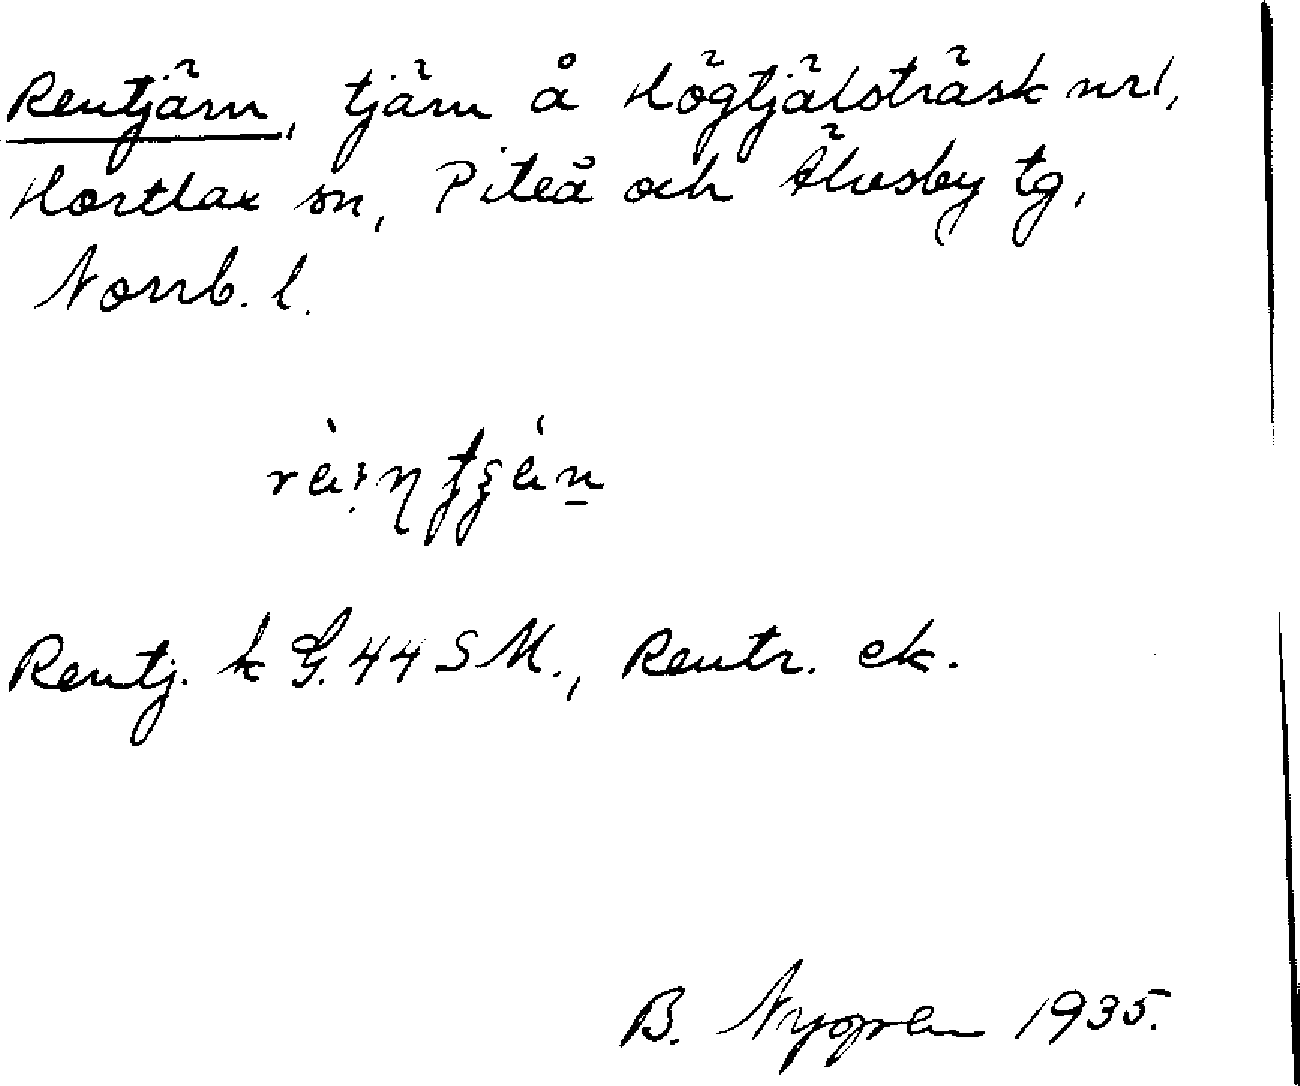 Rentjärn, tjärn å Högtjälsträsk nr 1,
Hortlax sn, Piteå och Älvsby tg,
Norrb. l.
Rentj. k G. 44 SM., Rentr. ek.
B. Nygren 1935.